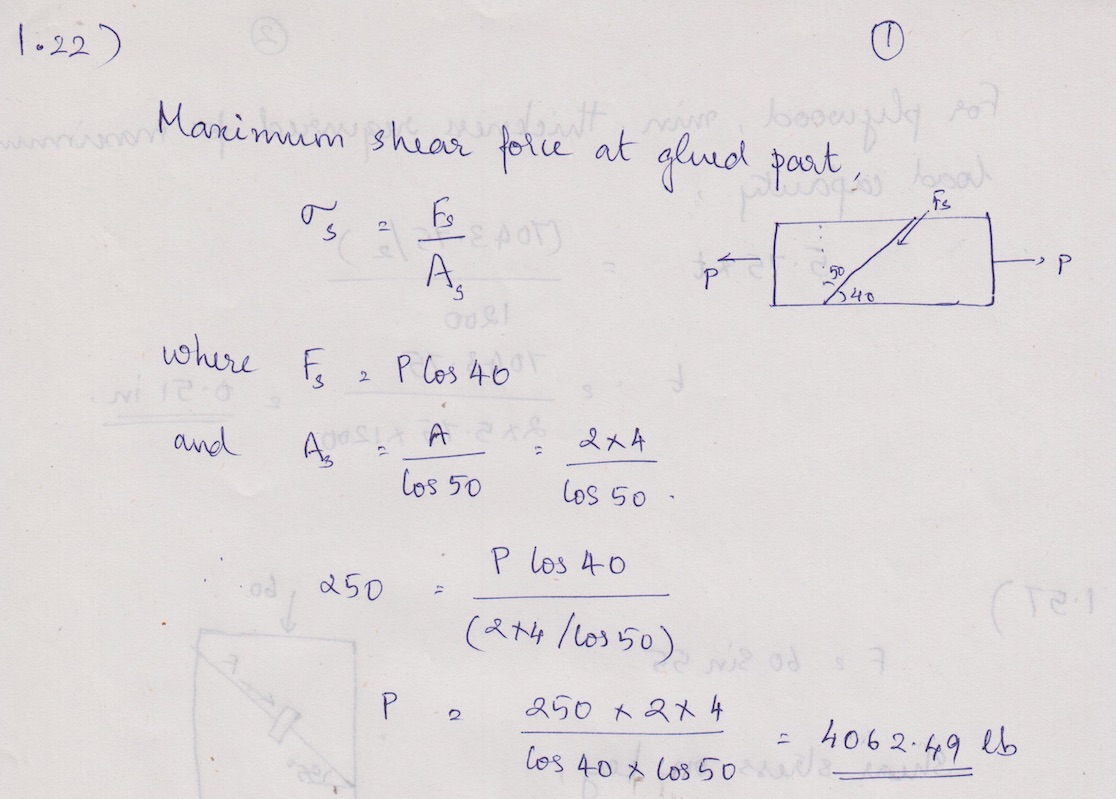 1.22)
①
Maximum shear force at glued part,
σs = Fs / As
Fs
P
P
50
40
where Fs = P Cos 40
and As = A / Cos 50 = 2×4 / Cos 50 .
250 = P Cos 40 / (2×4 / Cos 50)
P = 250 × 2 × 4 / Cos 40 × Cos 50 = 4062.49 lb